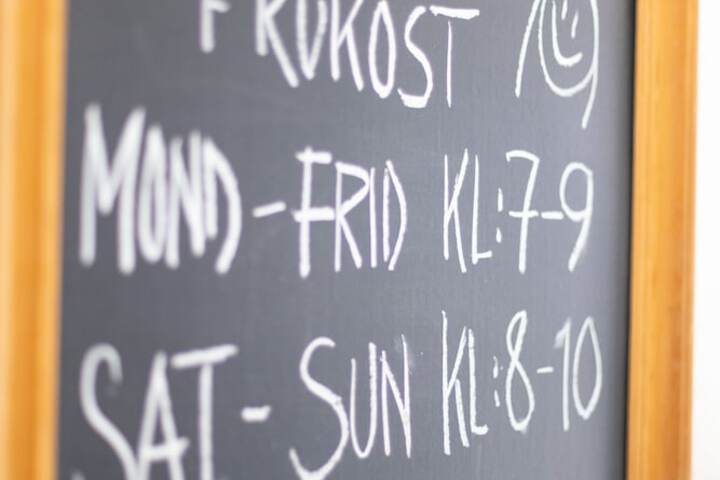 FRUKOST
MOND-FRID KL:7-9
SAT-SUN KL:8-10